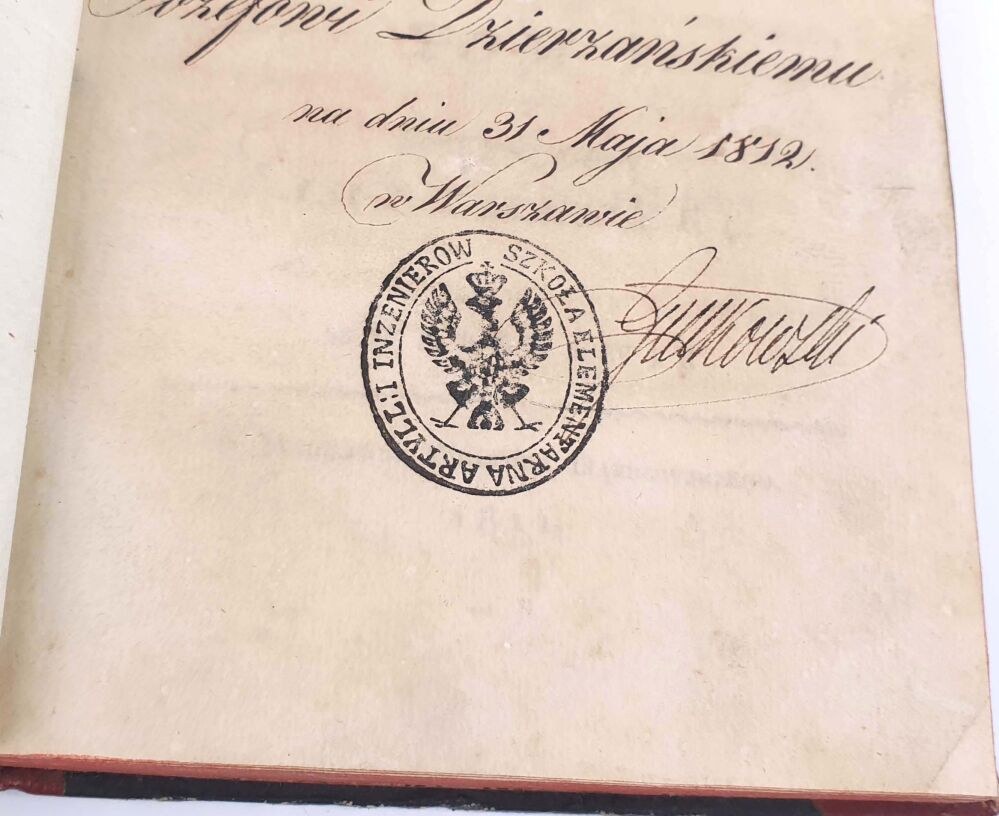 Józefowi Dzierzańskiemu
na dniu 31 Maja 1812.
w Warszawie
SZKOŁA ELEMENTARNA ARTYL: I INZENIEROW